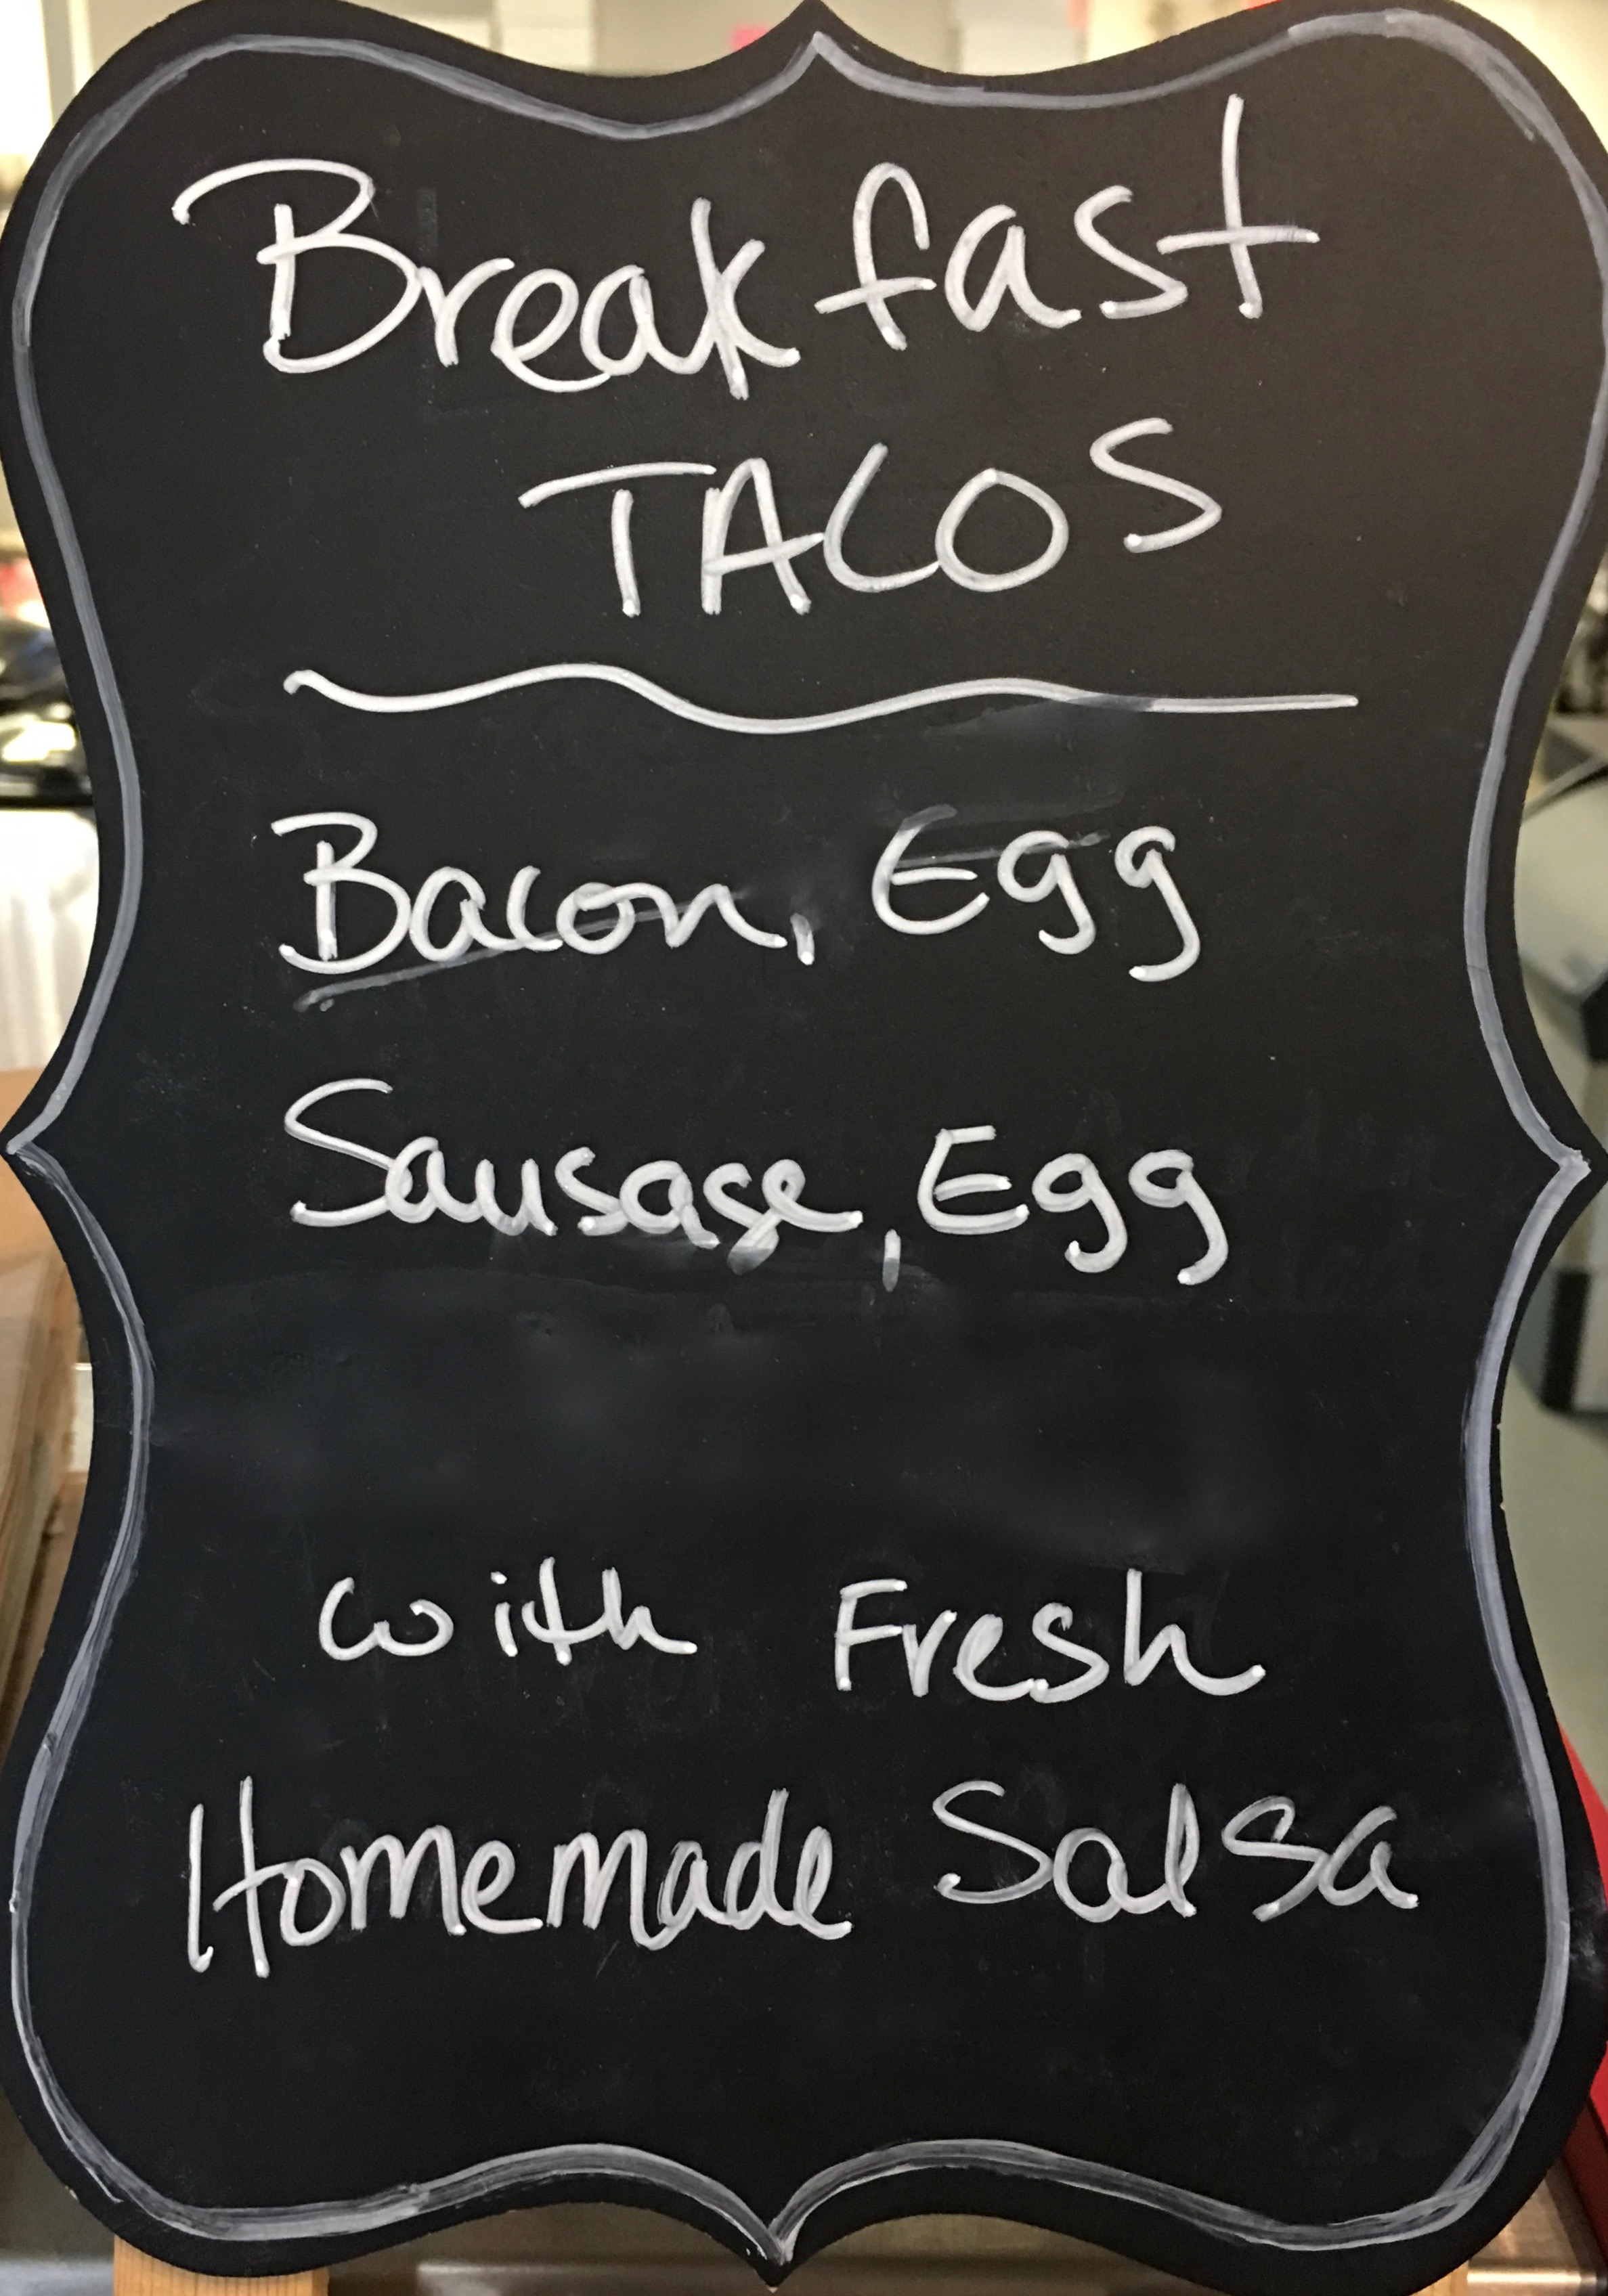 Breakfast
TACOS
Bacon, Egg
Sausage, Egg
with Fresh
Homemade Salsa